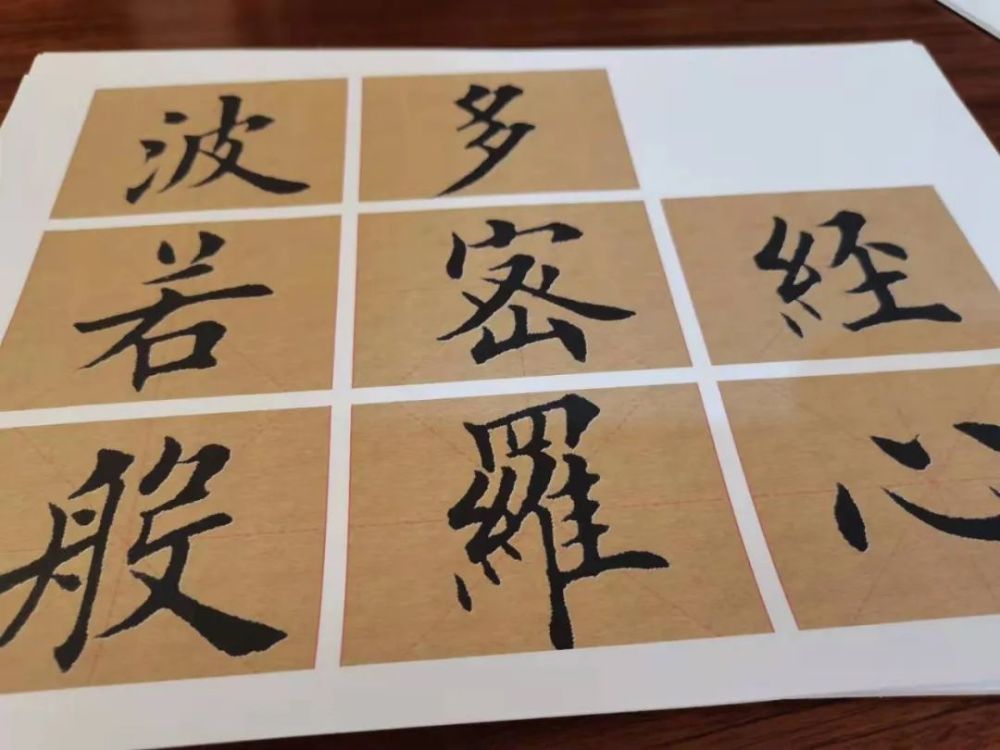 般若波
羅密多
心經